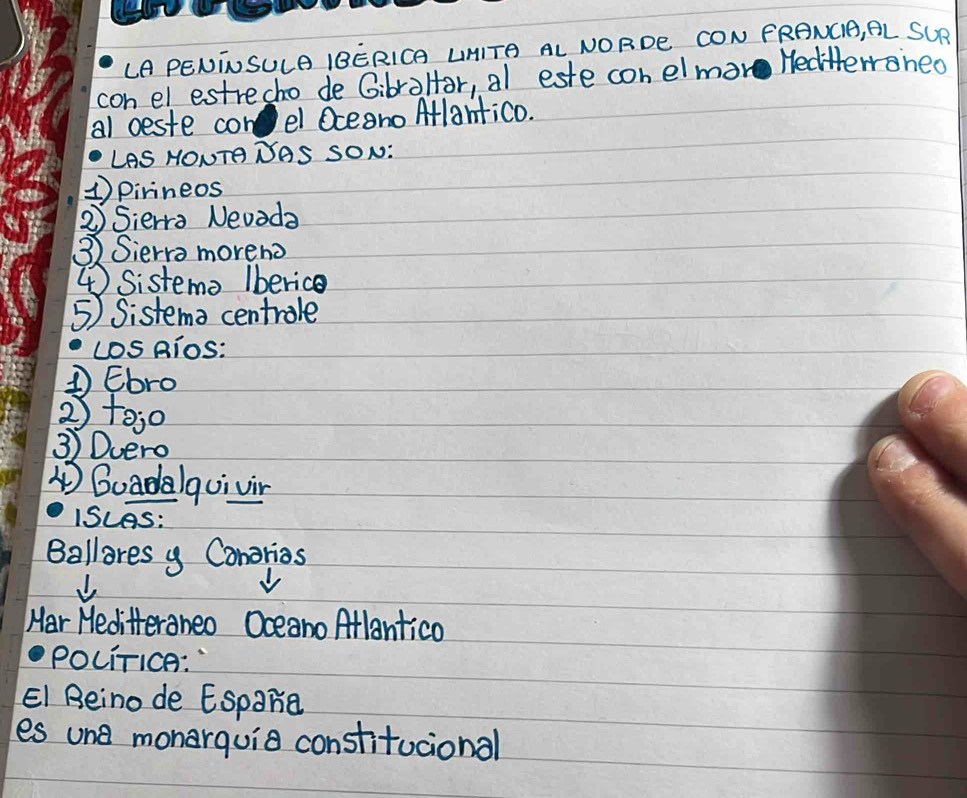 • LA PENÍNSULA IBÉRICA LIMITA AL NORDE CON FRANCIA, AL SUR
con el estrecho de Gibraltar, al este con el mar Meditterraneo
al oeste con el Oceano Atlantico.
• LAS MONTAÑAS SON:
1) Pirineos
2) Sierra Nevada
3) Sierra morena
4) Sistema Iberico
5) Sistema centrale
• LOS RÍOS:
1) Ebro
2) tajo
3) Duero
4) Guadalquivir
• ISLAS:
Ballares y Canarias
↓ ↓
Mar Meditteraneo Oceano Atlantico
• POLÍTICA:
El Reino de España
es una monarquía constitucional